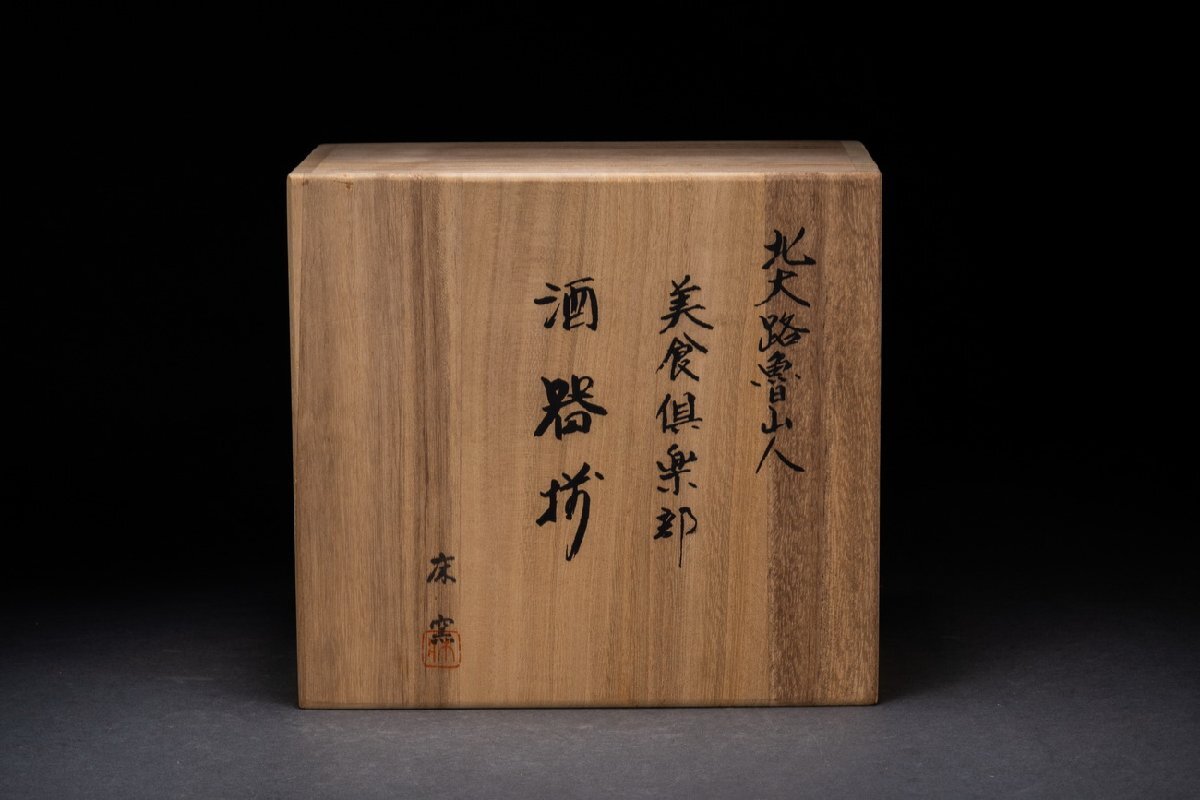 北大路魯山人
美食倶楽部
酒器揃
床窯